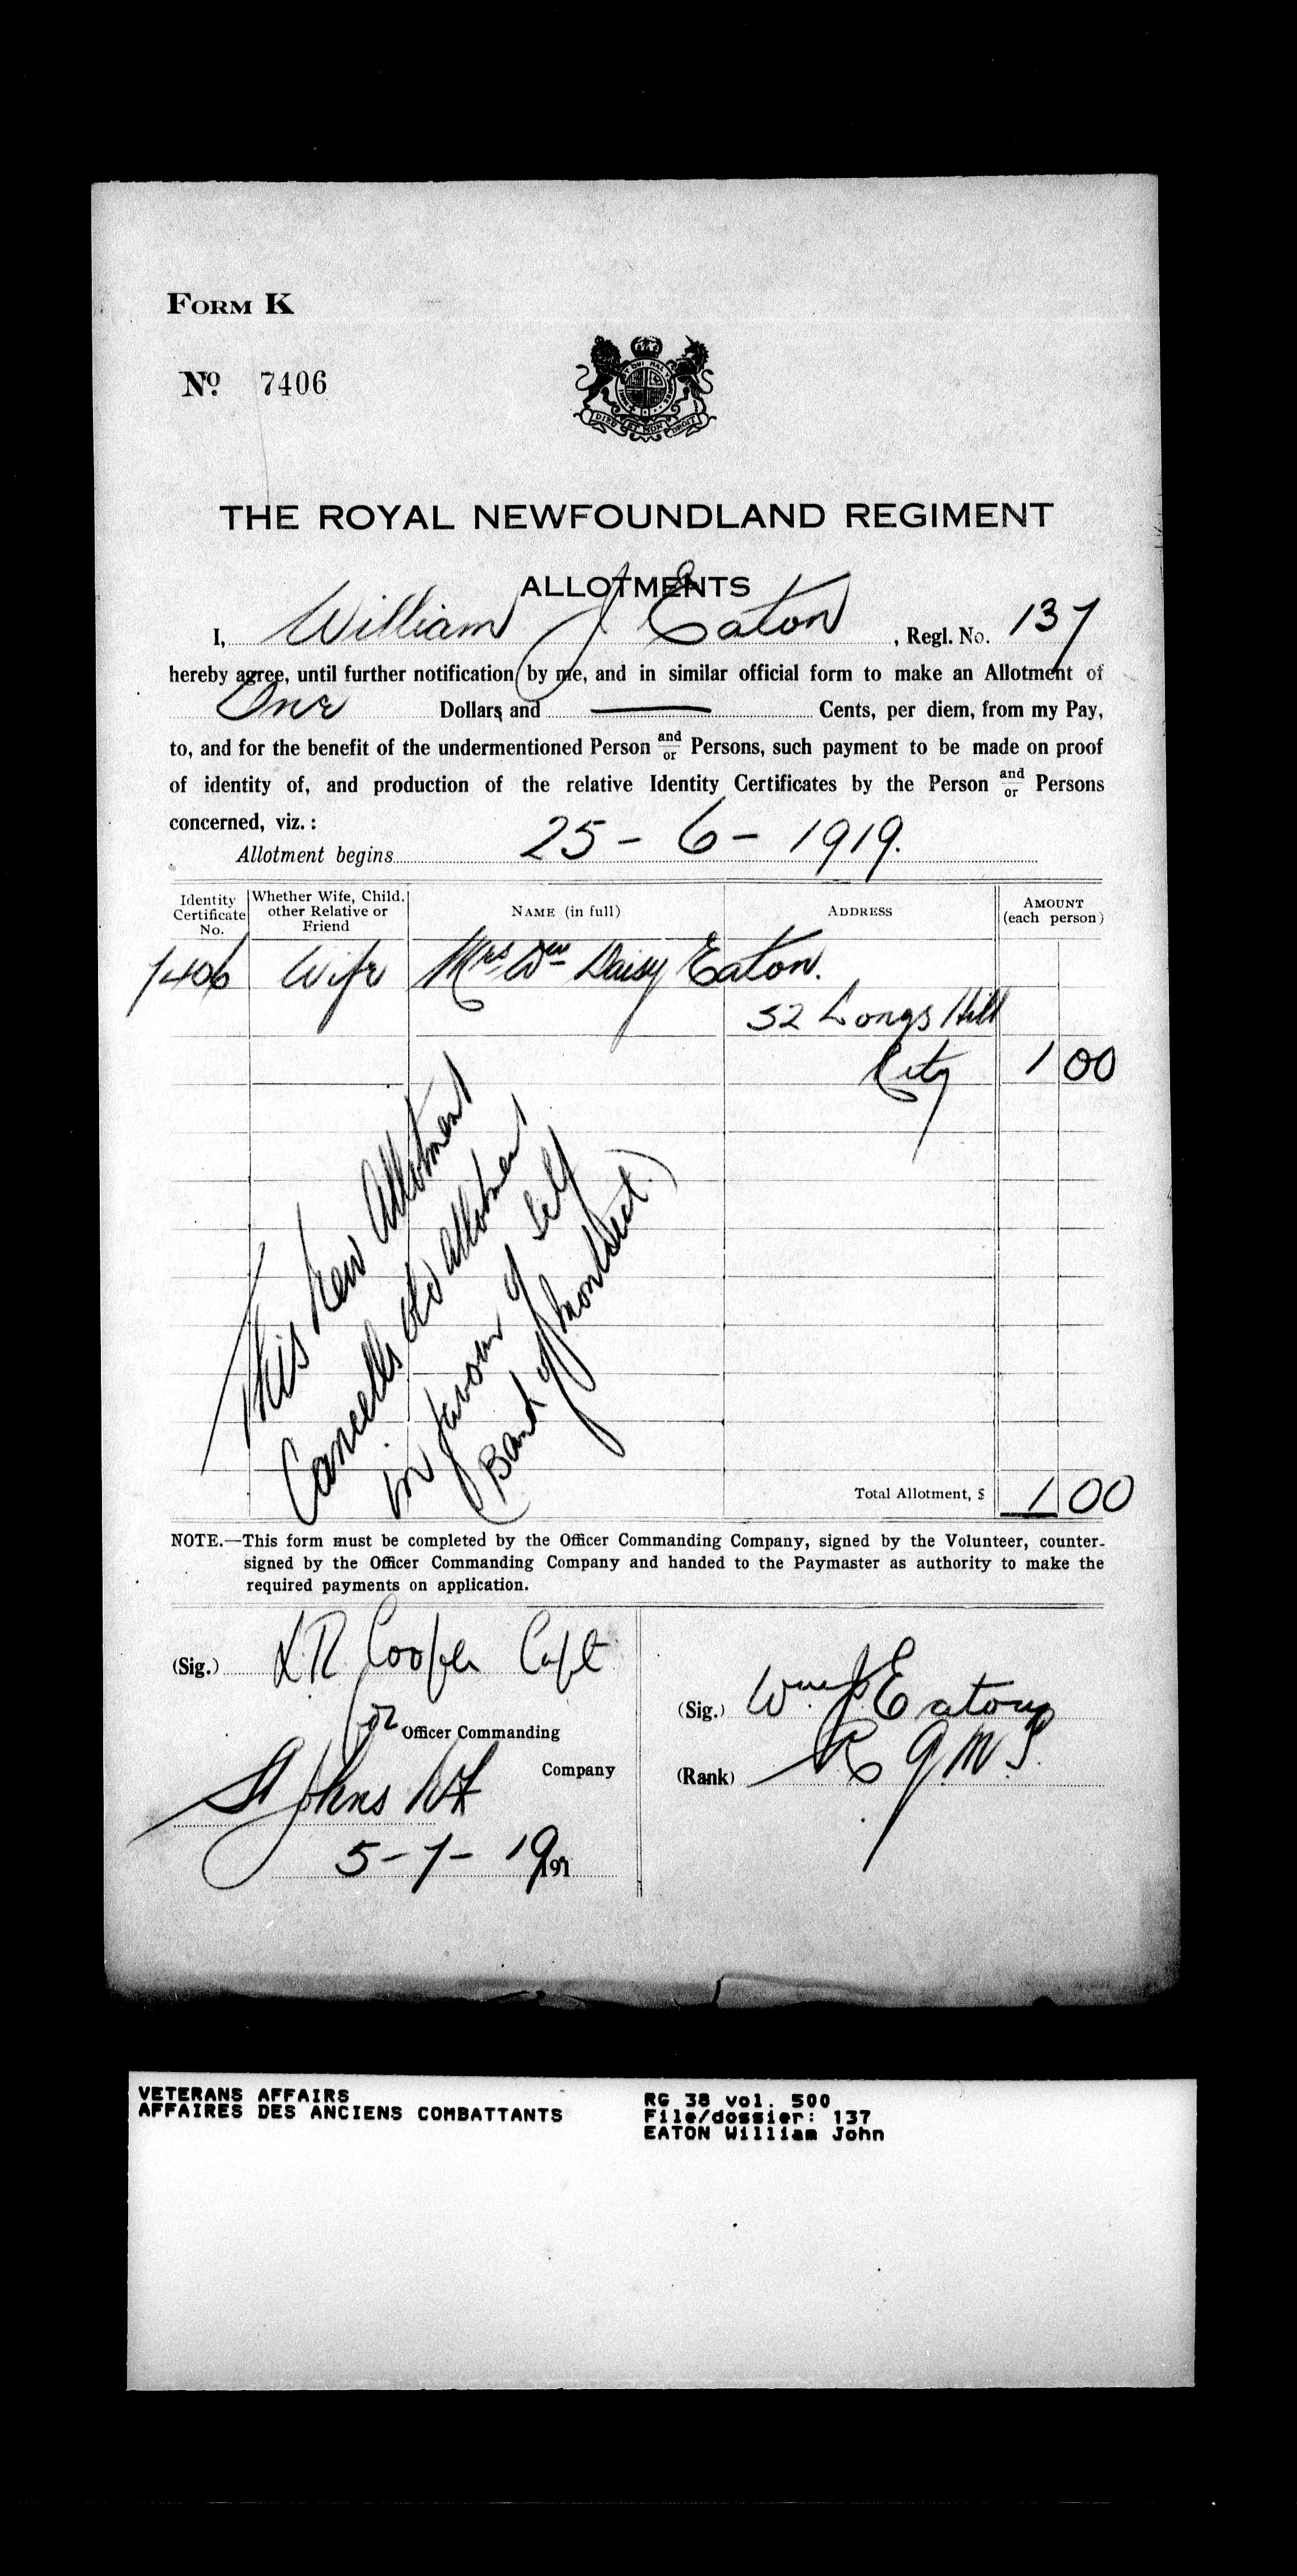 FORM K
No. 7406
DIEU ET MON DROIT
THE ROYAL NEWFOUNDLAND REGIMENT
ALLOTMENTS
I, William J Eaton, Regl. No. 137
hereby agree, until further notification by me, and in similar official form to make an Allotment of
One Dollars and — Cents, per diem, from my Pay,
to, and for the benefit of the undermentioned Person and/or Persons, such payment to be made on proof
of identity of, and production of the relative Identity Certificates by the Person and/or Persons
concerned, viz.:
Allotment begins 25 - 6 - 1919.
Identity Certificate No. Whether Wife, Child, other Relative or Friend NAME (in full) ADDRESS AMOUNT (each person)
7406 Wife Mrs Wm Daisy Eaton.
52 Longs Hill
City 1 00
This new Allotment
Cancells old allotment
in favour of self
(Bank of Montreal.)
Total Allotment, $ 1 00
NOTE.—This form must be completed by the Officer Commanding Company, signed by the Volunteer, counter-
signed by the Officer Commanding Company and handed to the Paymaster as authority to make the
required payments on application.
(Sig.) LR Cooper Capt
for Officer Commanding
Company
St Johns Nf
5-7-19 191
(Sig.) Wm J Eaton
(Rank) R Q M S.
VETERANS AFFAIRS
AFFAIRES DES ANCIENS COMBATTANTS
RG 38 vol. 500
File/dossier: 137
EATON William John